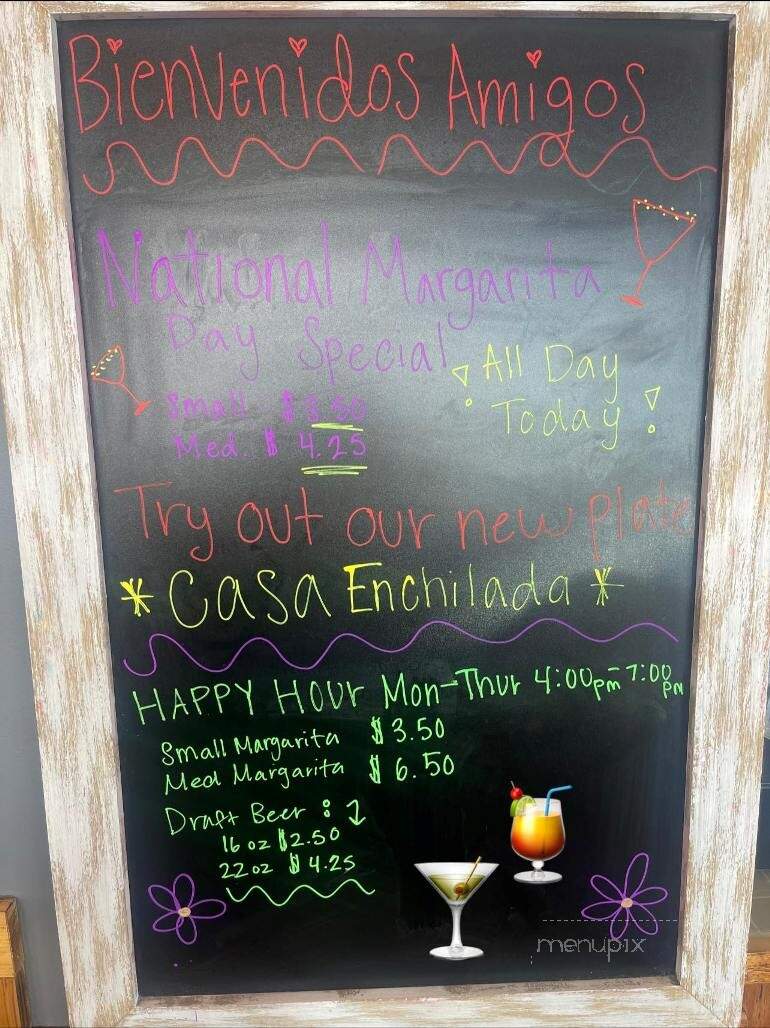 Bienvenidos Amigos
National Margarita
Day Special
All Day
Today!
Small $3.50
Med. $4.25
Try out our new plate
* Casa Enchilada *
HAPPY HOUR Mon-Thur 4:00pm-7:00pm
Small Margarita $3.50
Med Margarita $6.50
Draft Beer:
16 oz $2.50
22 oz $4.25
menupix